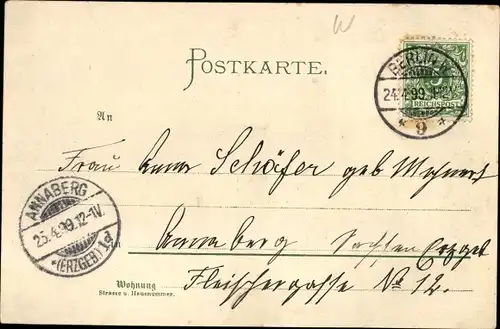 POSTKARTE.
BERLIN
24.4.99
* 9 *
5
REICHSPOST
An
Frau Anna Schäfer geb
ANNABERG
25.4.99.12-1V.
*(ERZGEB)
in
Annaberg Sachsen Erzgeb
Fleischergasse No 12.
Wohnung
Strasse u. Hausnummer.